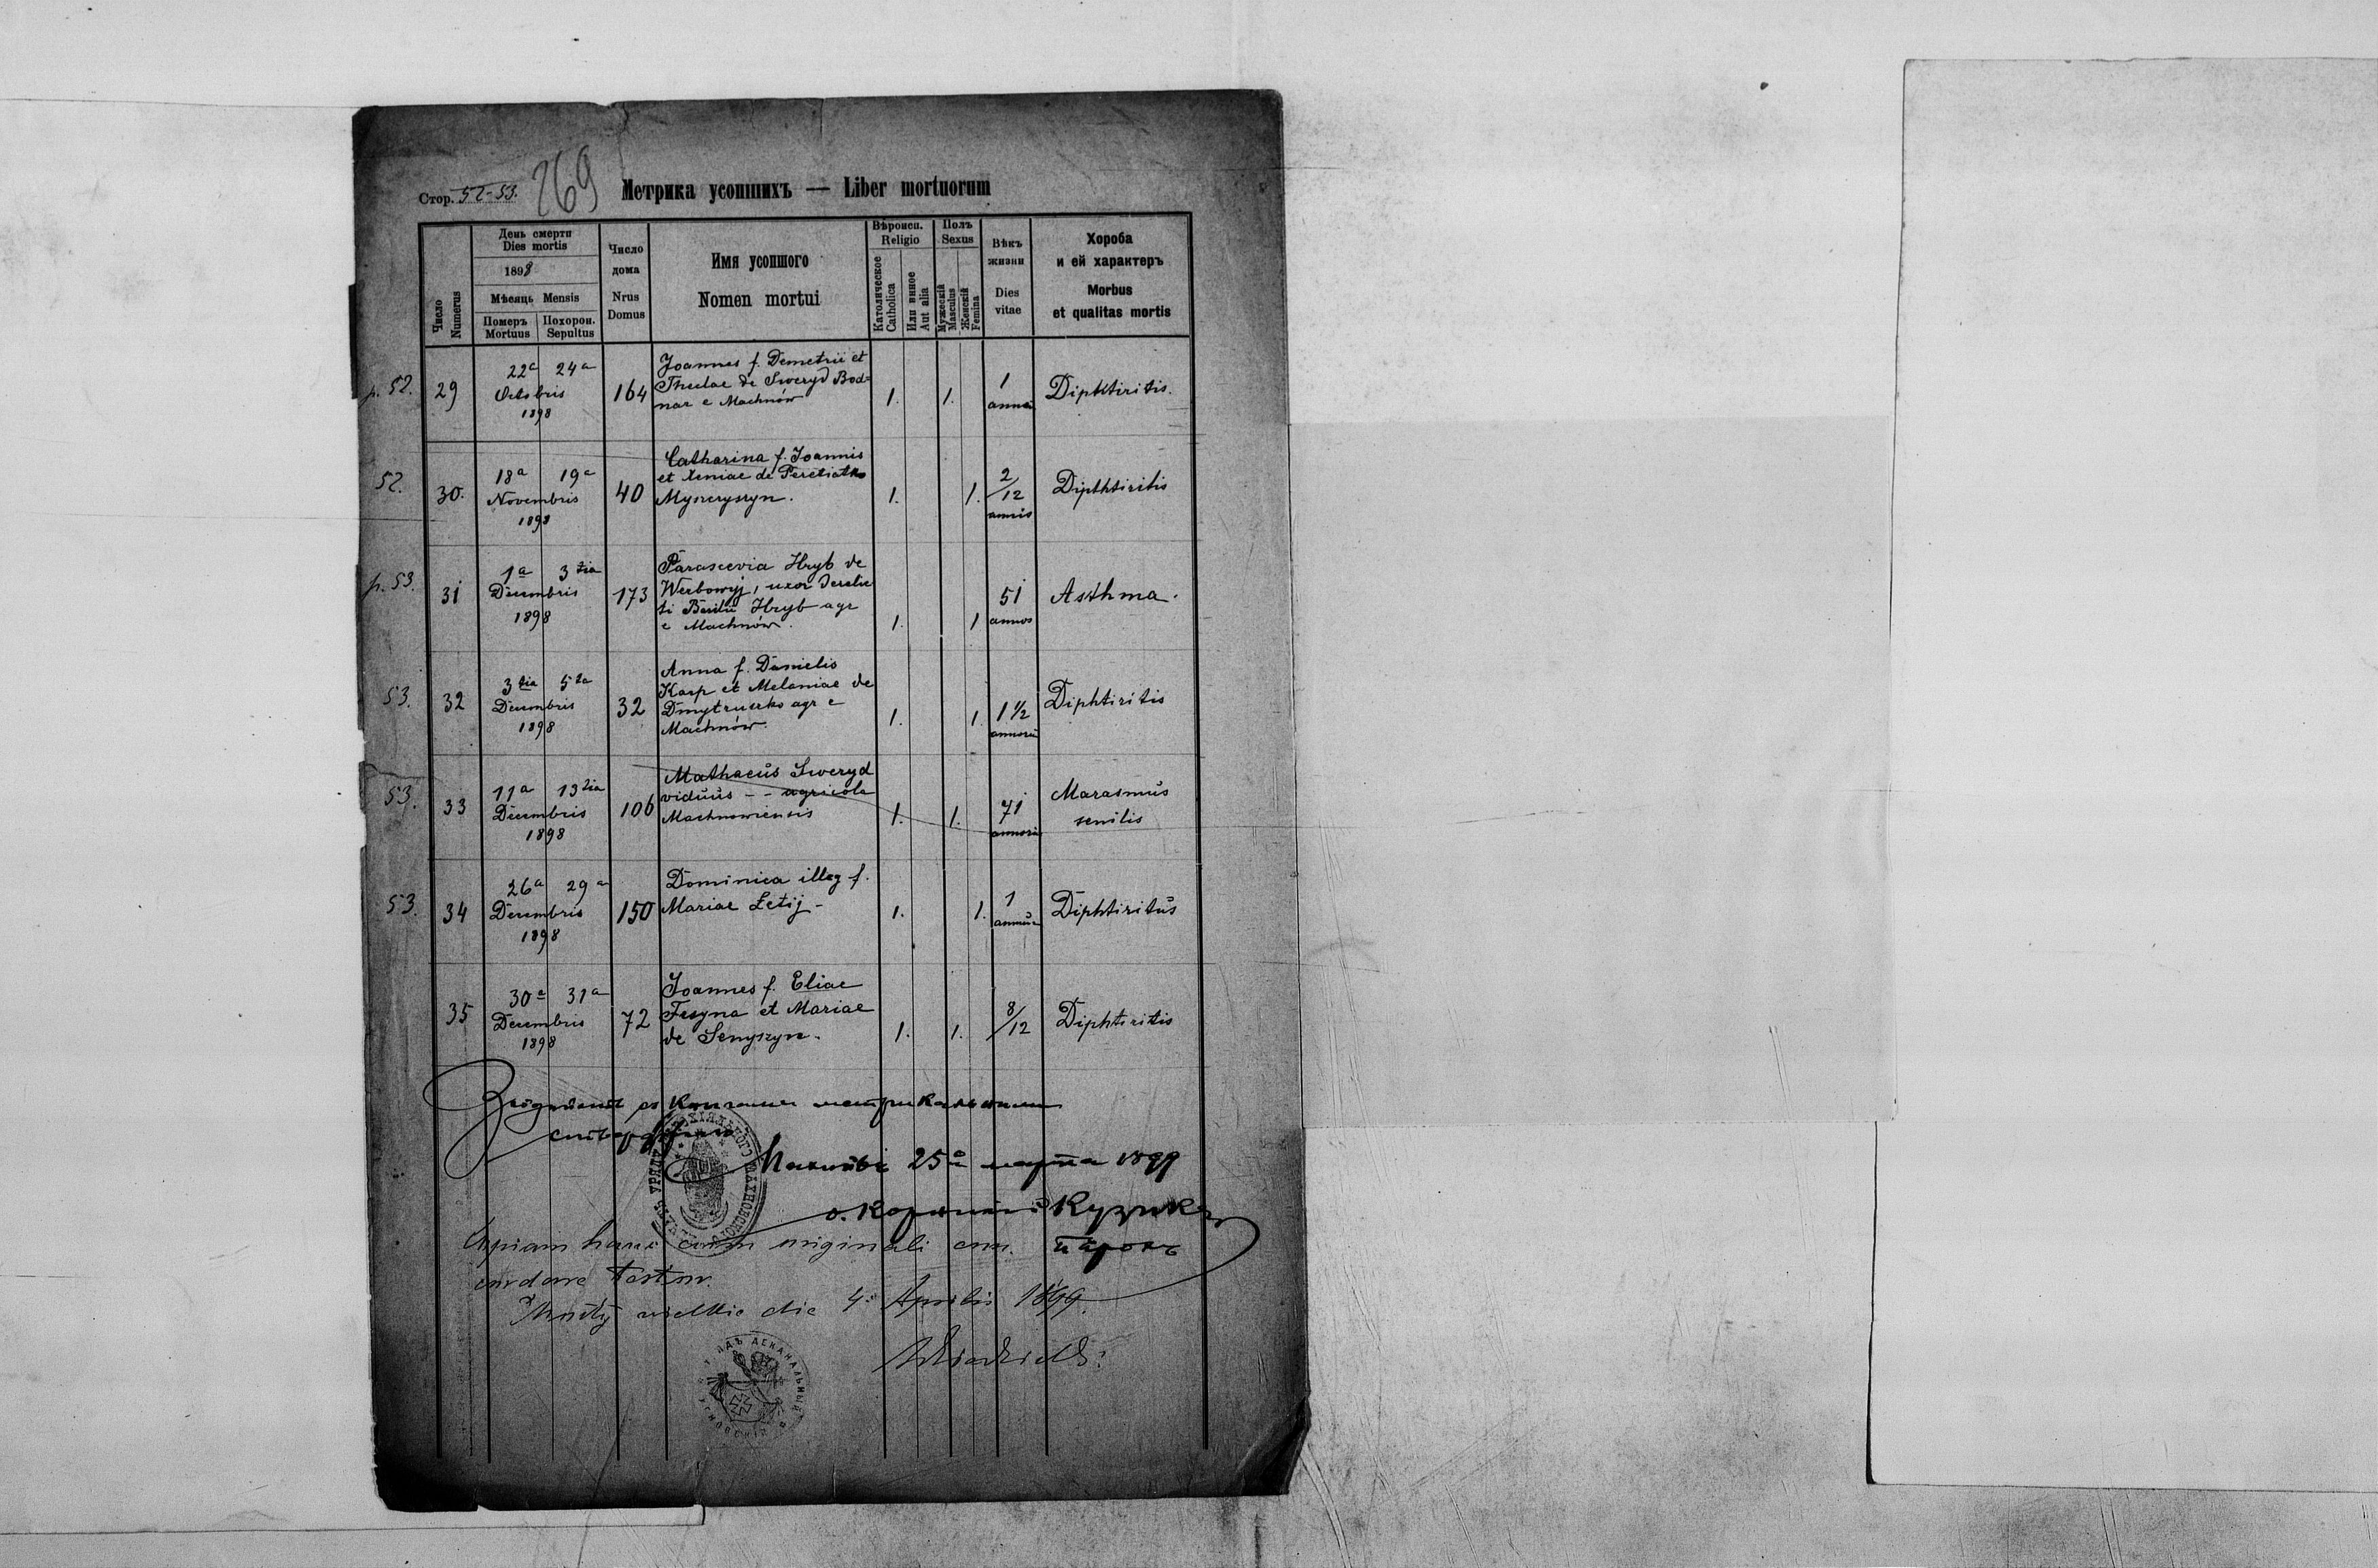 Стор. 52-53.
269
Метрика усопшихъ — Liber mortuorum
Число
Numerus
День смерти
Dies mortis
1898
Мѣсяць Mensis
Померъ
Mortuus
Похорон.
Sepultus
Число
дома
Nrus
Domus
Имя усопшого
Nomen mortui
Вѣроисп.
Religio
Католическое
Catholica
Или инное
Aut alia
Полъ
Sexus
Мужескій
Masculus
Женскій
Femina
Вѣкъ
жизни
Dies
vitae
Хороба
и ей характеръ
Morbus
et qualitas mortis
p. 52. 29
22a 24a
Octobris
1898
164
Joannes f. Demetrii et
Theclae de Sweryd Bod=
nar e Machnów
1. 1.
1
Diphtiritis.
52. 30.
18a 19a
Novembris
1898
40
Catharina f. Joannis
et Xeniae de Peretiatko
Myszczyszyn.
1. 1.
2/12
annis
Diphtiritis
p. 53. 31
1a 3tia
Decembris
1898
173
Parascevia Hryb de
Werbowyj, uxor derelic
ti Basilii Hryb agr
e Machnów.
1. 1
51
annos
Asthma.
53. 32
3tia 5ta
Decembris
1898
32
Anna f. Danielis
Karp et Melaniae de
Dmytruszko agr e
Machnów.
1. 1.
1 1/2
annorū
Diphtiritis
53. 33
11a 13tia
Decembris
1898
106
Mathaeus Sweryd
viduus - - agricola
Machnowiensis
1. 1.
71
annorū
Marasmus
senilis
53. 34
26a 29a
Decembris
1898
150
Dominica illeg f.
Mariae Letij -
1. 1.
1
annus
Diphtiritus
35
30a 31a
Decembris
1898
72
Joannes f. Eliae
Fesyna et Mariae
de Senyszyn.
1. 1.
8/12
Diphtiritis
съ книгами метрикальными
25 марта 1899
о. Кузик
парохъ
Copiam hanc cum originali con
cordare testor.
die 4 Aprilis 1899.